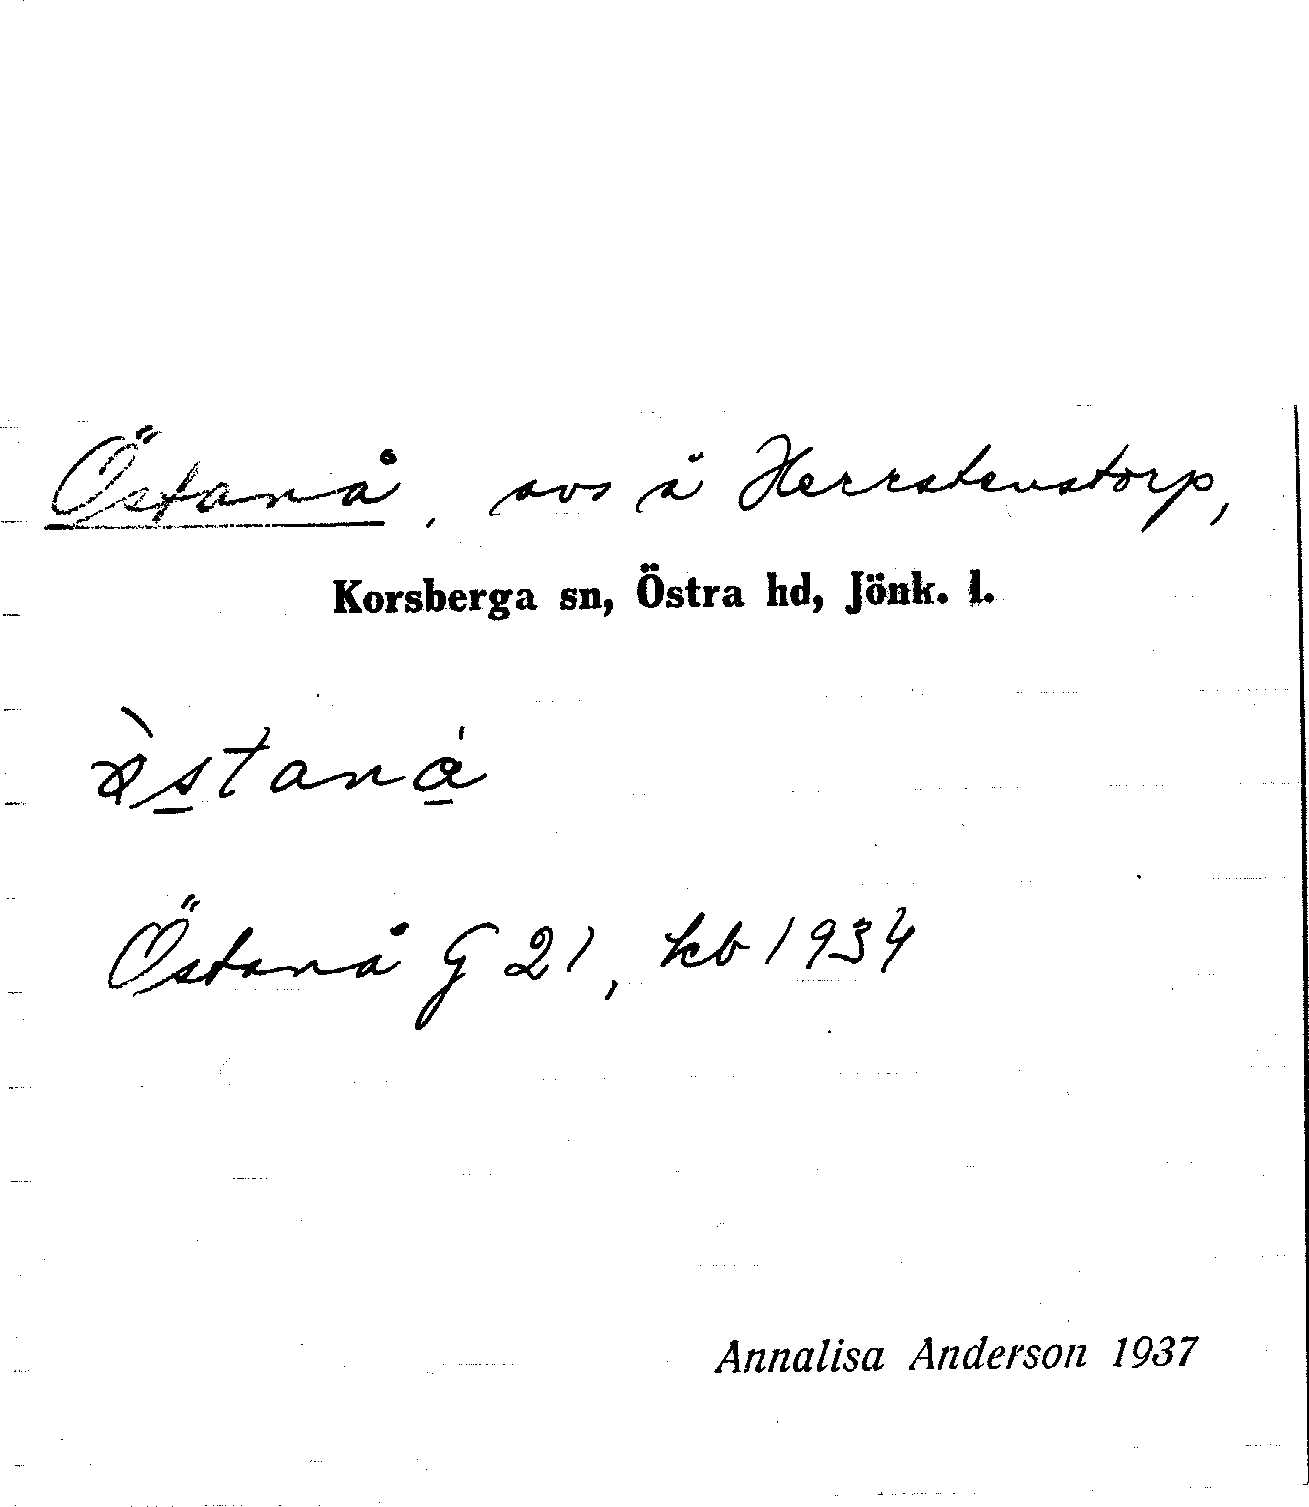 Östanå, avs å Herrstenstorp,
Korsberga sn, Östra hd, Jönk. l.
Östanå G 21, kb 1934
Annalisa Anderson 1937